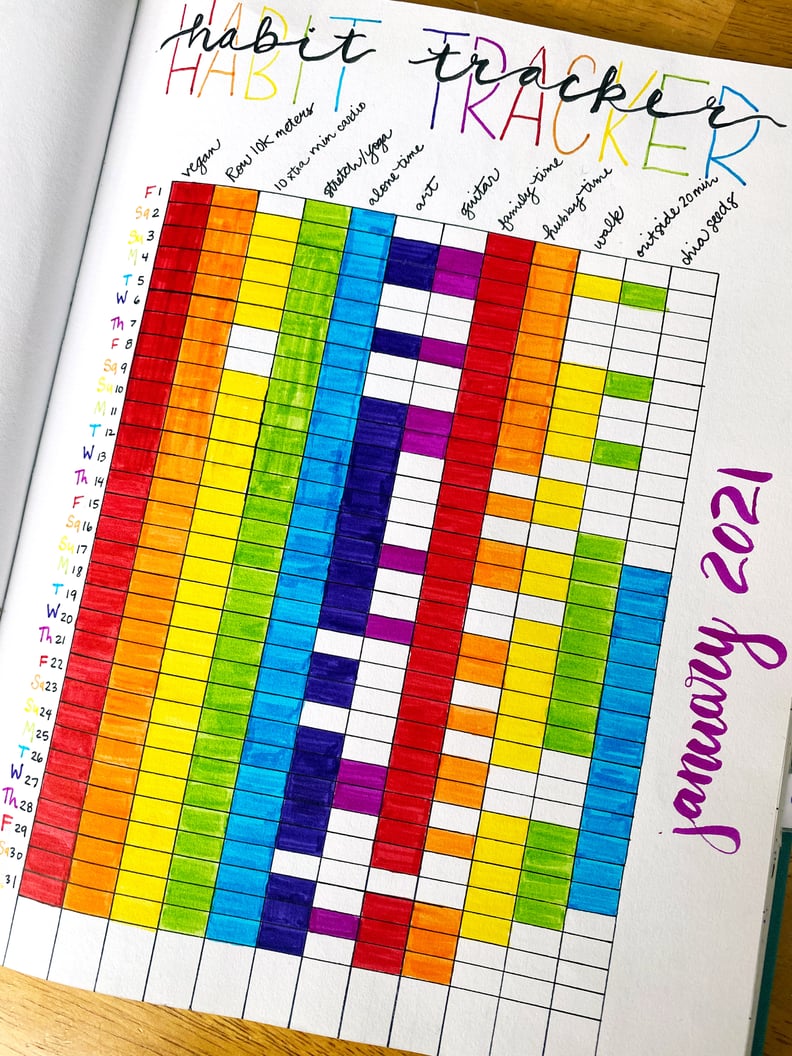 HABIT TRACKER
habit tracker
vegan
Row 10K meters
10 xtra min cardio
stretch/yoga
alone time
art
guitar
family time
hubby time
walk
outside 20 min
chia seeds
F 1
Sa 2
Su 3
M 4
T 5
W 6
Th 7
F 8
Sa 9
Su 10
M 11
T 12
W 13
Th 14
F 15
Sa 16
Su 17
M 18
T 19
W 20
Th 21
F 22
Sa 23
Su 24
M 25
T 26
W 27
Th 28
F 29
Sa 30
31
january 2021